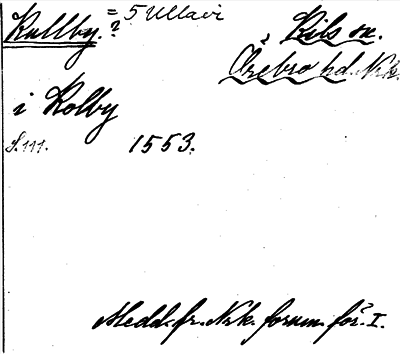 Kullby. = 5 Ullavi
?
Kils sn.
Örebro hd. Nrk.
i Kolby
S. 111. 1553.
Medd. fr. Nrk. fornm. för. I.